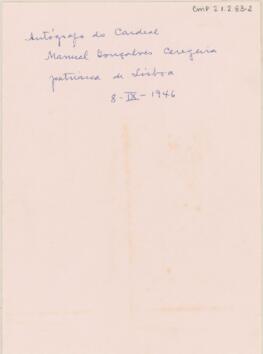 CMP 2.1.2.83-2
Autógrafo do Cardeal
Manuel Gonçalves Cerejeira
patriarca de Lisboa
8-IX-1946